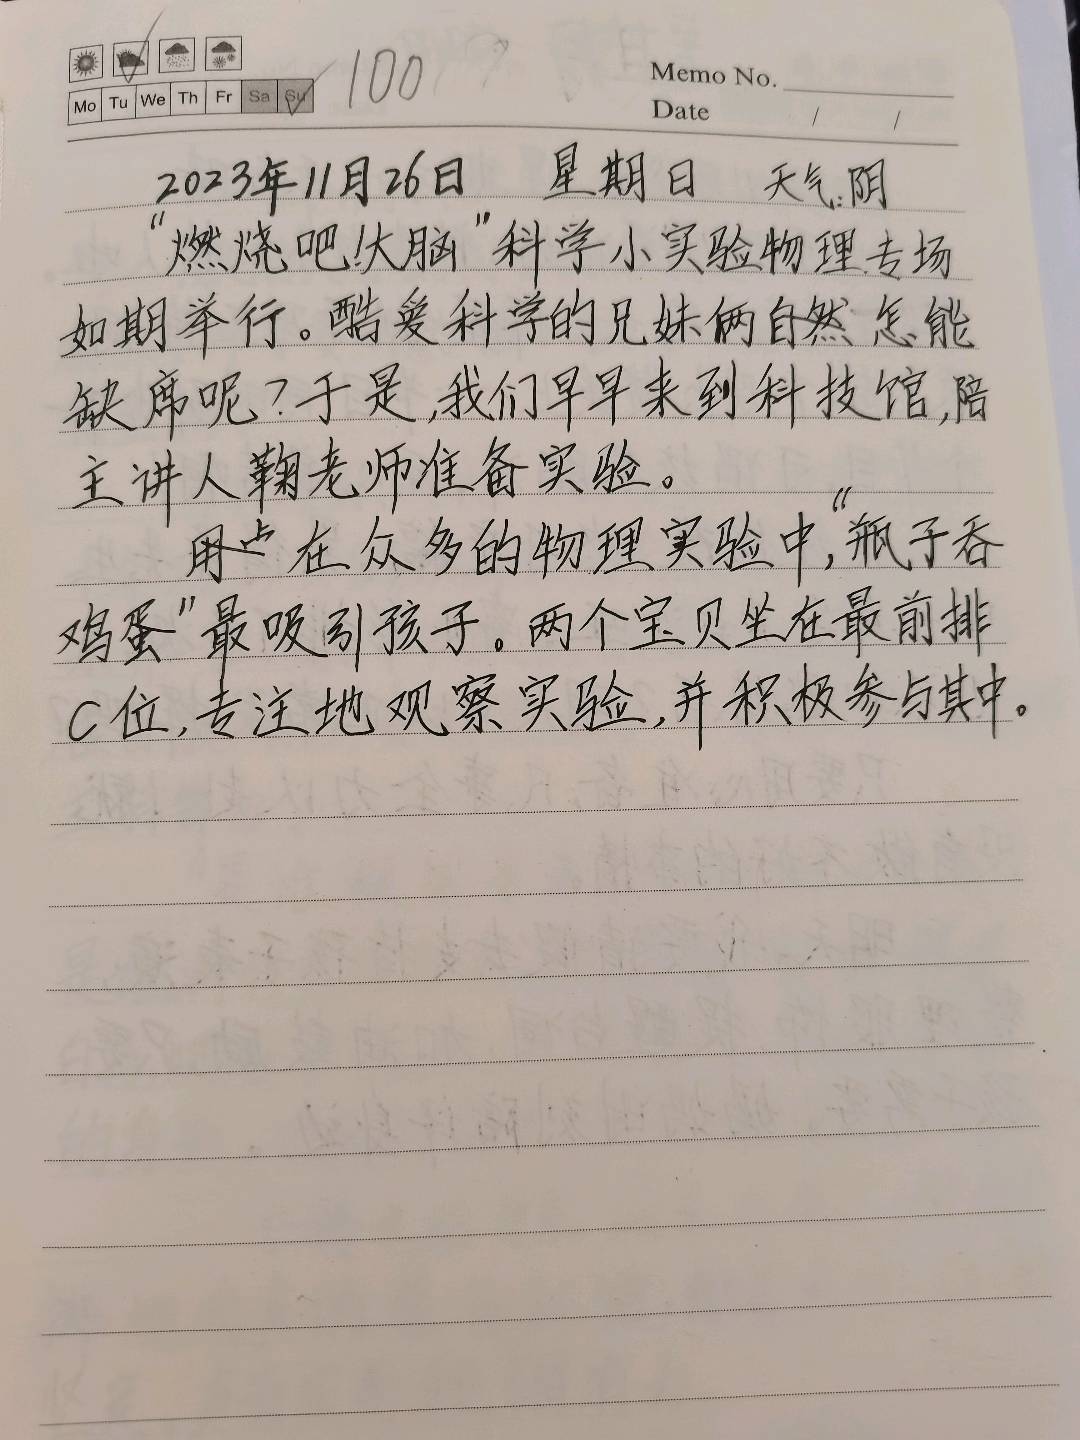 100
Memo No.
Mo Tu We Th Fr Sa Su
Date / /
2023年11月26日 星期日 天气:阴
“燃烧吧!大脑”科学小实验物理专场
如期举行。酷爱科学的兄妹俩自然怎能
缺席呢?于是,我们早早来到科技馆,陪
主讲人鞠老师准备实验。
在众多的物理实验中,“瓶子吞
鸡蛋”最吸引孩子。两个宝贝坐在最前排
C位,专注地观察实验,并积极参与其中。